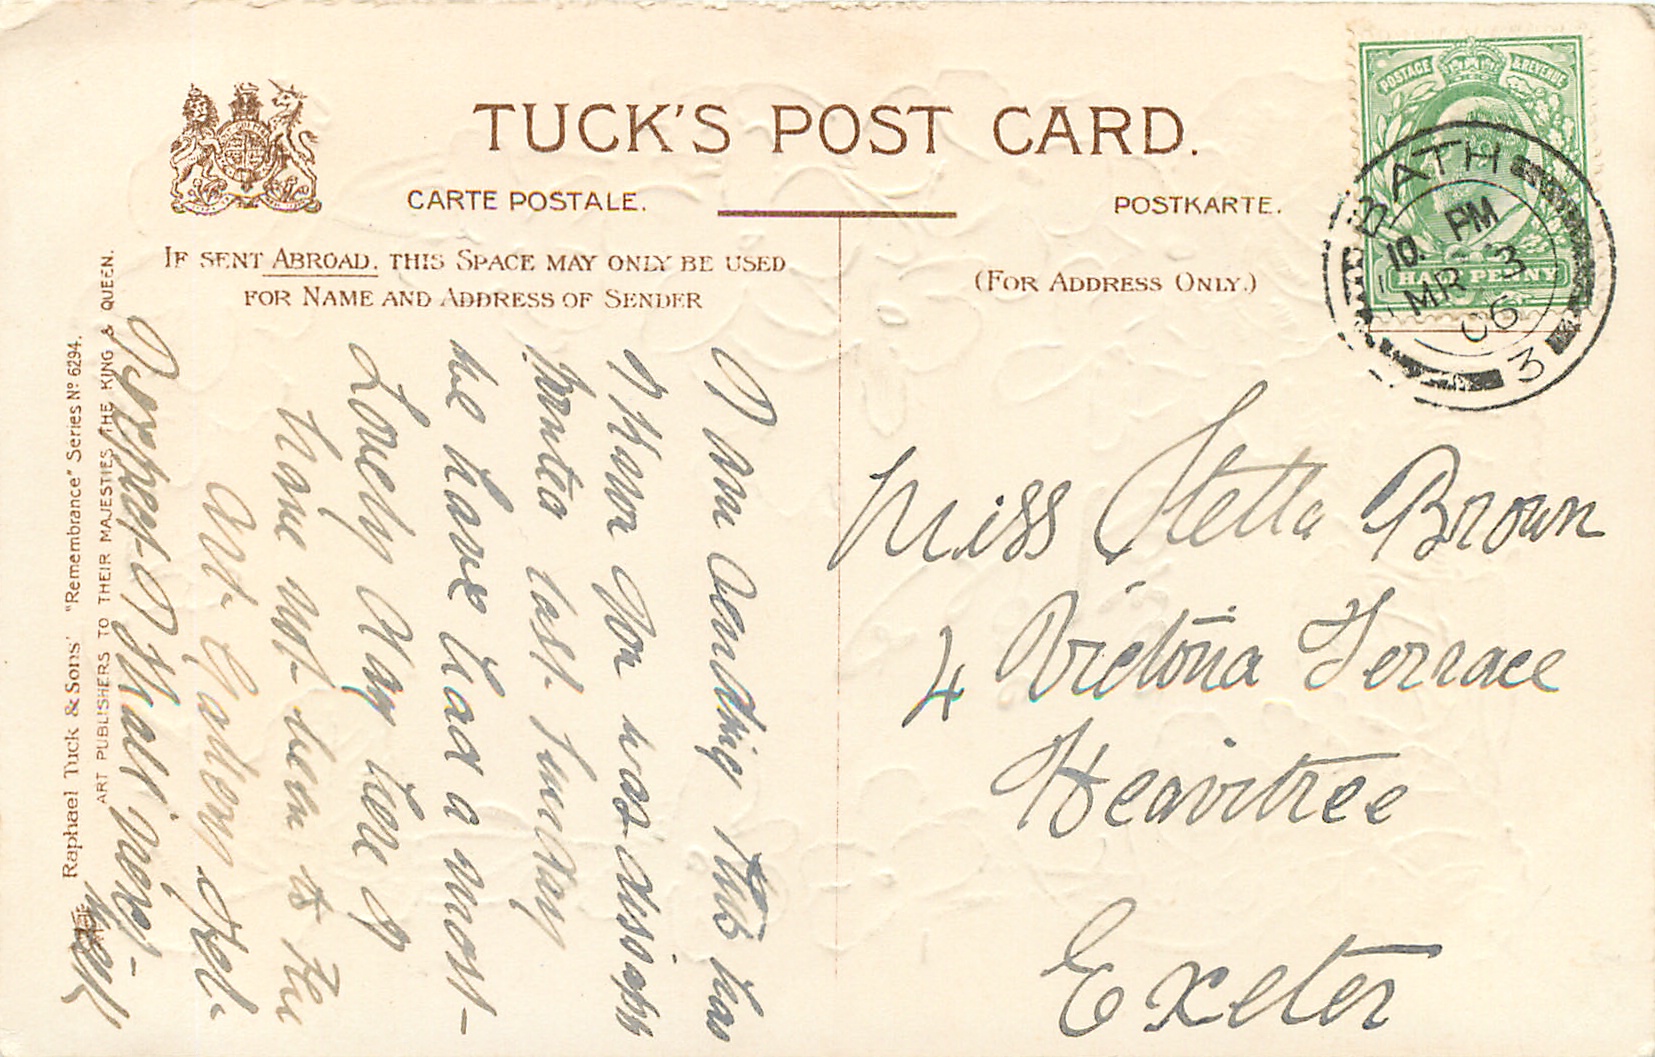 TUCK'S POST CARD.
CARTE POSTALE.
POSTKARTE.
IF SENT ABROAD, THIS SPACE MAY ONLY BE USED
FOR NAME AND ADDRESS OF SENDER
(FOR ADDRESS ONLY.)
POSTAGE & REVENUE
HALFPENNY
BATH
10. PM
MR 3
06
3
I am sending this has
I know you was
last Sunday
we have had a most
Lovely day here
have not been to the
Art Gallery
I shall
next
week
Miss Stella Brown
4 Victoria Terrace
Heavitree
Exeter
Raphael Tuck & Sons' "Remembrance" Series Nº 6294.
ART PUBLISHERS TO THEIR MAJESTIES THE KING & QUEEN.